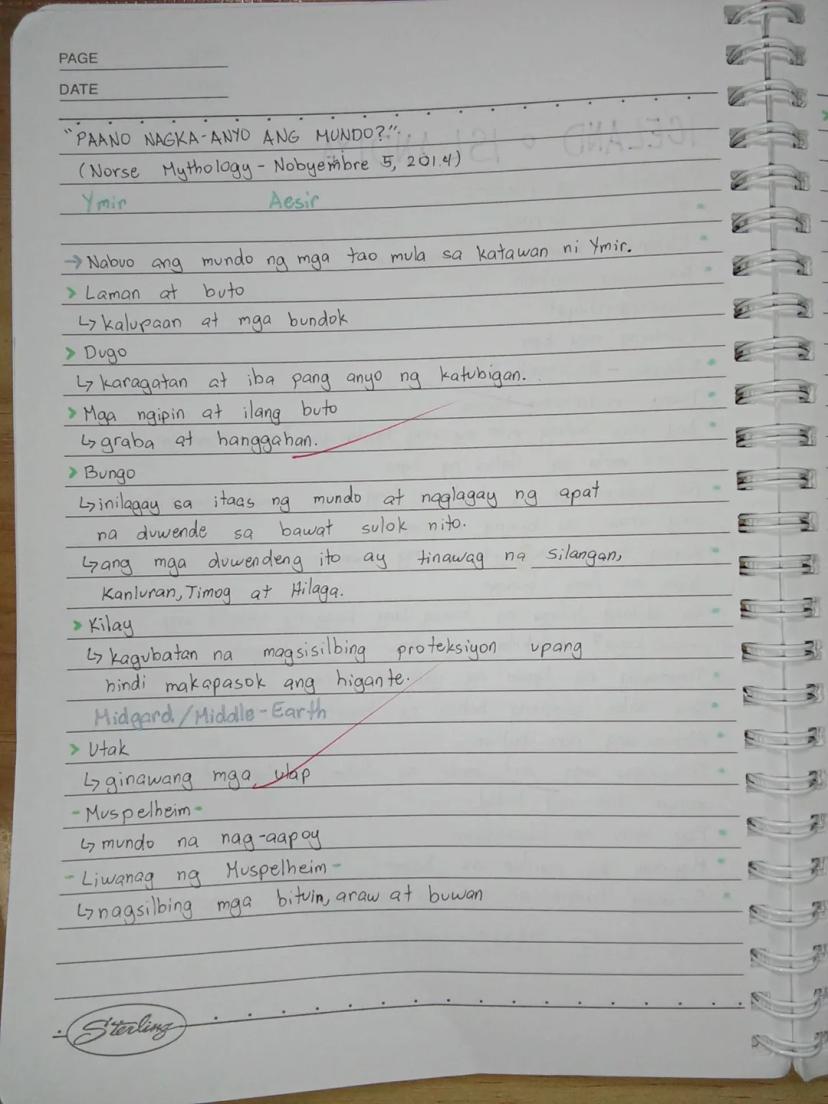 PAGE
DATE
"PAANO NAGKA-ANYO ANG MUNDO?"
(Norse Mythology - Nobyembre 5, 2014)
Ymir Aesir
→ Nabuo ang mundo ng mga tao mula sa katawan ni Ymir.
> Laman at buto
↳ kalupaan at mga bundok
> Dugo
↳ karagatan at iba pang anyo ng katubigan.
> Mga ngipin at ilang buto
↳ graba at hanggahan.
> Bungo
↳ inilagay sa itaas ng mundo at naglagay ng apat
na duwende sa bawat sulok nito.
↳ ang mga duwendeng ito ay tinawag na Silangan,
Kanluran, Timog at Hilaga.
> Kilay
↳ kagubatan na magsisilbing proteksiyon upang
hindi makapasok ang higante.
Midgard/Middle-Earth
> Utak
↳ ginawang mga ulap
- Muspelheim -
↳ mundo na nag-aapoy
- Liwanag ng Muspelheim -
↳ nagsilbing mga bituin, araw at buwan
Sterling